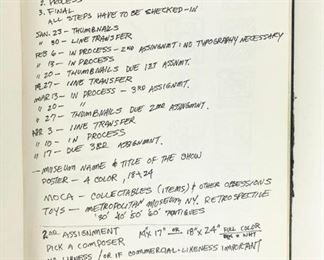 2. PROCESS
3. FINAL
ALL STEPS HAVE TO BE SHECKED-IN
JAN. 23 - THUMBNAILS
" 30 - LINE TRANSFER
FEB 6 - IN PROCESS - 2ND ASSINGMT: NO TYPOGRAPHY NECESSERY
" 13 - IN PROCESS
" 20 - THUMBNAILS DUE 1ST ASNMT.
" 27 - LINE TRANSFER
MAR 13 - IN PROCESS - 3RD ASSIGMT.
" 20 - "
" 27 - THUMBNAILS DUE 2ND ASSNMNT.
APR 3 - LINE TRANSFER
" 10 - IN PROCESS
" 17 - DUE 3RD ASSIGNMNT.
- MUSEUM NAME & TITLE OF THE SHOW
POSTER - 4 COLOR, 18-24
MOCA - COLLECTABLES (ITEMS) & OTHER OBSESSIONS
TOYS - METROPOLITAN MUSEUM NY. RETROSPECTIVE
'30' 40' 50' 60' ANTIQUES
2ND ASSIGNMENT 17" OR 18"X 24" FULL COLOR
PICK A COMPOSER
LIKNESS / OR IF COMMERCIAL-LIKENESS IMPORTANT